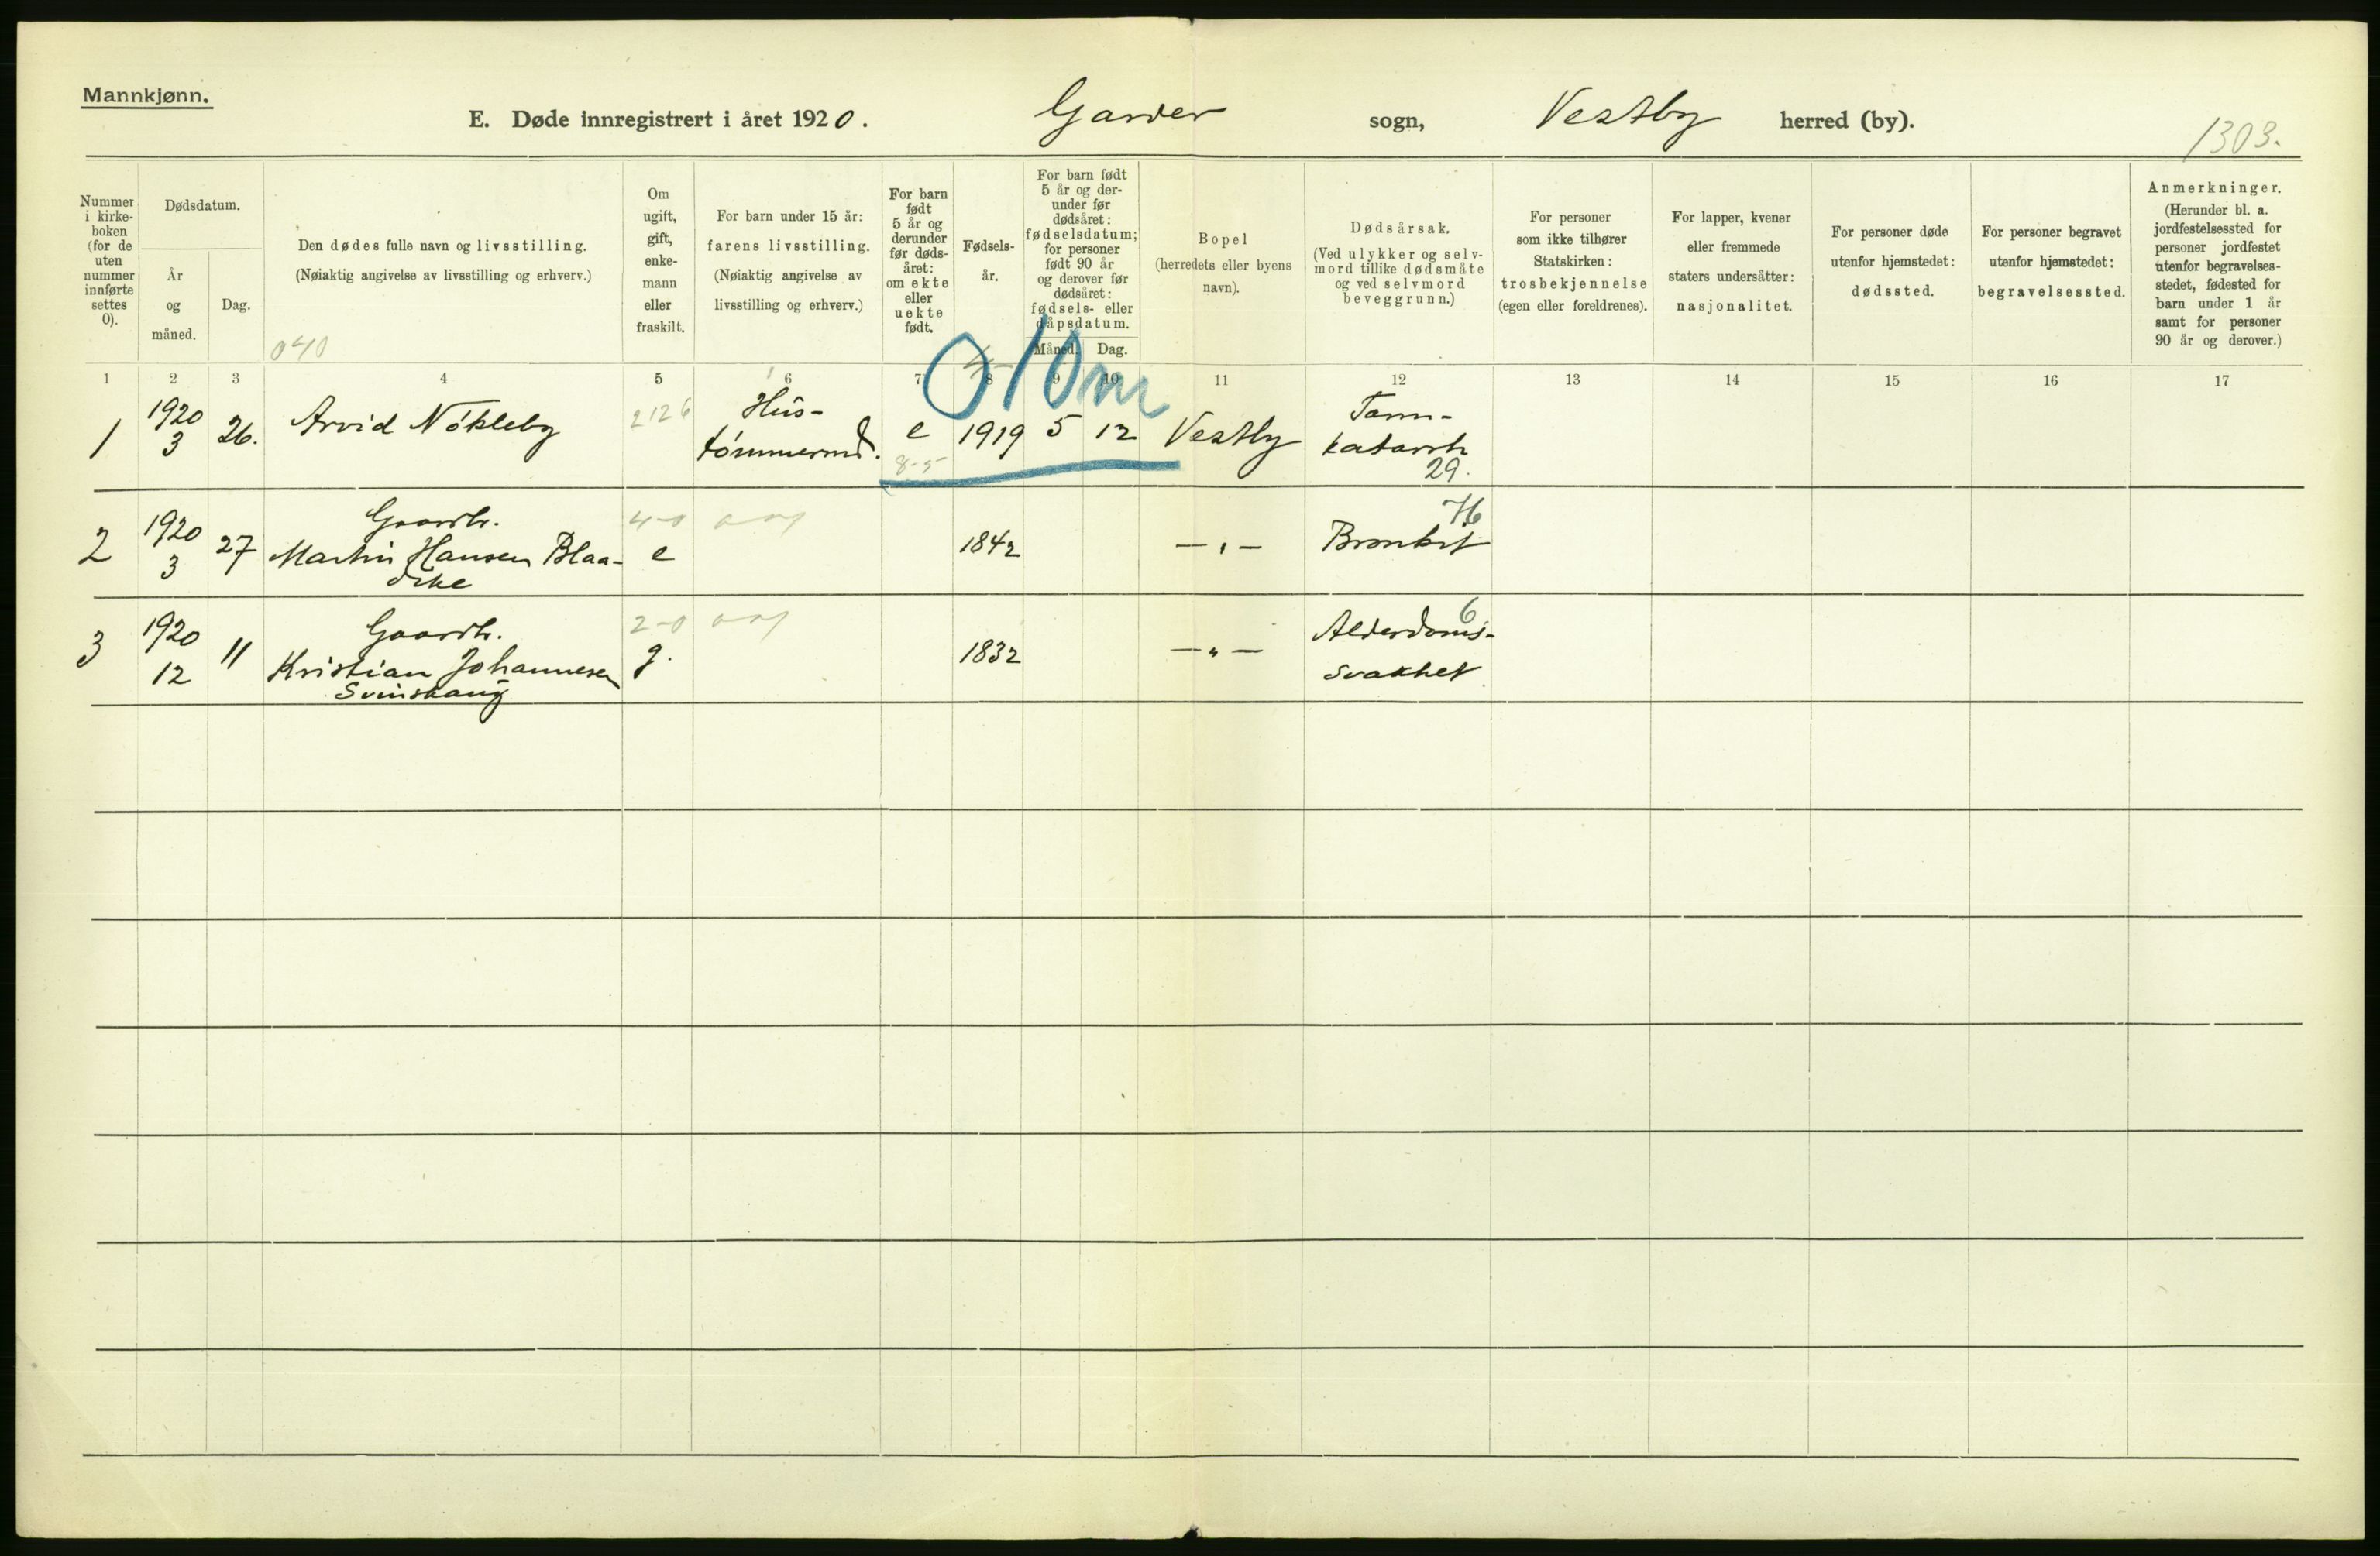 Mannkjønn.
E. Døde innregistrert i året 1920. Garder sogn, Vestby herred (by).
1303.
Nummer i kirke-boken (for de uten nummer innførte settes 0).
Dødsdatum.
År og måned.
Dag.
Den dødes fulle navn og livsstilling.
(Nøiaktig angivelse av livsstilling og erhverv.)
040
Om ugift, gift, enke-mann eller fraskilt.
For barn under 15 år:
farens livsstilling.
(Nøiaktig angivelse av
livsstilling og erhverv.)
For barn født 5 år og derunder før døds-året: om ekte eller uekte født.
Fødsels-år.
For barn født 5 år og der-under før dødsåret: fødselsdatum; for personer født 90 år og derover før dødsåret: fødsels- eller dåpsdatum.
Måned. Dag.
Bopel
(herredets eller byens
navn).
Dødsårsak.
(Ved ulykker og selv-
mord tillike dødsmåte
og ved selvmord
beveggrunn.)
For personer
som ikke tilhører
Statskirken:
trosbekjennelse
(egen eller foreldrenes).
For lapper, kvener
eller fremmede
staters undersåtter:
nasjonalitet.
For personer døde
utenfor hjemstedet:
dødssted.
For personer begravet
utenfor hjemstedet:
begravelsessted.
Anmerkninger.
(Herunder bl. a.
jordfestelsessted for
personer jordfestet
utenfor begravelses-
stedet, fødested for
barn under 1 år
samt for personer
90 år og derover.)
1 2 3 4 5 6 7 8 9 10 11 12 13 14 15 16 17
010 m
1 1920 3 26. Arvid Nökleby 2126 Hus-
tömmermd. e 1919 5 12 Vestby Tarm-
katarrh
8-5
29.
2 1920 3 27 Gaardbr.
Martin Hansen Blaa-
4-0 e 1842 — " — Bronkit 76
3 1920 12 11 Gaardbr.
Kristian Johannesen
Svinskaug
2-0 g. 1832 — " — Alderdoms-
svakhet 6